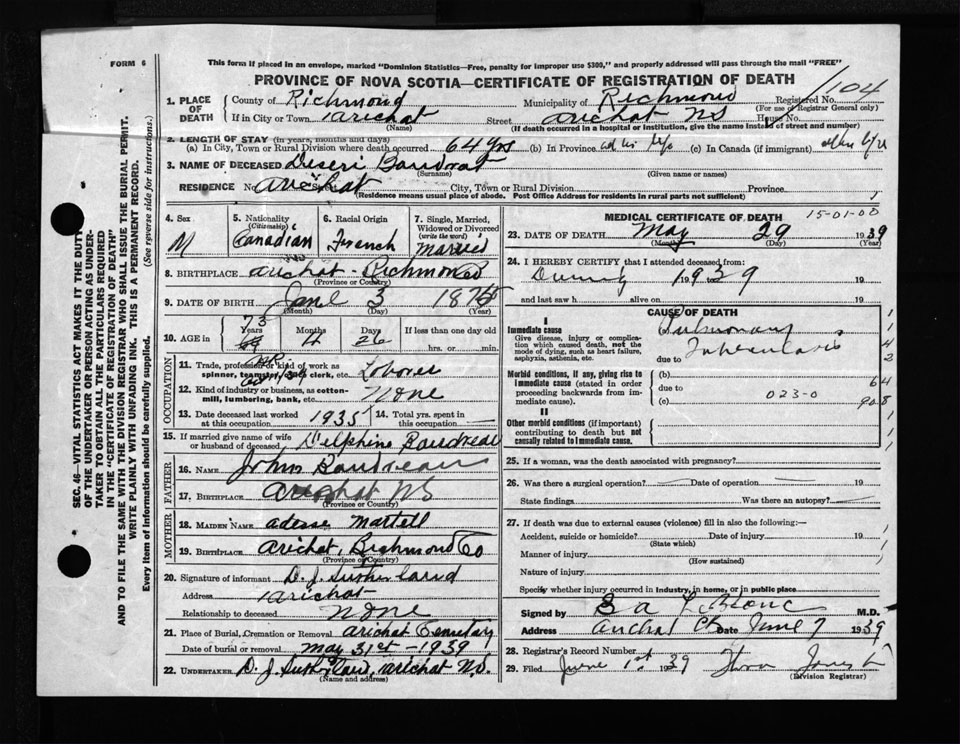 FORM 6
This form if placed in an envelope, marked "Dominion Statistics—Free, penalty for improper use $300," and properly addressed will pass through the mail "FREE"
PROVINCE OF NOVA SCOTIA—CERTIFICATE OF REGISTRATION OF DEATH
104
1. PLACE OF DEATH
County of Richmond Municipality of Richmond Registered No.
(For use of Registrar General only)
If in City or Town Arichat Street Arichat NS House No.
(Name) (If death occurred in a hospital or institution, give the name instead of street and number)
2. LENGTH OF STAY (in years, months and days)
(a) In City, Town or Rural Division where death occurred 64 yrs (b) In Province all his life (c) In Canada (if immigrant)
3. NAME OF DECEASED
(Surname) (Given name or names)
RESIDENCE No. Arichat Street City, Town or Rural Division Province
(Residence means usual place of abode. Post Office Address for residents in rural parts not sufficient)
4. Sex M
5. Nationality (Citizenship) Canadian
6. Racial Origin French
7. Single, Married, Widowed or Divorced (write the word) Married
8. BIRTHPLACE Arichat - Richmond Co
(Province or Country)
9. DATE OF BIRTH 3 187
(Month) (Day) (Year)
10. AGE in 73 Years 4 Months 26 Days If less than one day old hrs. or min.
OCCUPATION
11. Trade, profession or kind of work as spinner, teamster, office clerk, etc. Laborer
12. Kind of industry or business, as cotton-mill, lumbering, bank, etc. None
13. Date deceased last worked at this occupation 1935 14. Total yrs. spent in this occupation
15. If married give name of wife or husband of deceased Delphine Boudreau
FATHER
16. NAME John Boudreau
17. BIRTHPLACE Arichat NS
(Province or Country)
MOTHER
18. MAIDEN NAME Martell
19. BIRTHPLACE Arichat, Richmond Co
(Province or Country)
20. Signature of informant D. J. Sutherland
Address Arichat
Relationship to deceased None
21. Place of Burial, Cremation or Removal Arichat Cemetary
Date of burial or removal May 31st - 1939
22. UNDERTAKER D. J. Sutherland, Arichat N.S.
(Name and address)
MEDICAL CERTIFICATE OF DEATH
15-01-00
23. DATE OF DEATH May 29 1939
(Month) (Day)
24. I HEREBY CERTIFY that I attended deceased from:
During 1939 to 19
and last saw h alive on 19
CAUSE OF DEATH
I
Immediate cause (a) Pulmonary
Give disease, injury or complication which caused death, not the mode of dying, such as heart failure, asphyxia, asthenia, etc.
due to Tuberculosis
Morbid conditions, if any, giving rise to immediate cause (stated in order proceeding backwards from immediate cause).
(b)
due to
(c) 023-0
II
Other morbid conditions (if important) contributing to death but not causally related to immediate cause.
1
1
4
2
64
908
25. If a woman, was the death associated with pregnancy?
26. Was there a surgical operation? Date of operation 19
State findings Was there an autopsy?
27. If death was due to external causes (violence) fill in also the following:—
Accident, suicide or homicide? Date of injury 19
(State which)
Manner of injury
(How sustained)
Nature of injury
Specify whether injury occurred in industry, in home, or in public place
Signed by M.D.
Address Date June 7 1939
28. Registrar's Record Number
29. Filed June 1st 1939
(Division Registrar)
SEC. 46—VITAL STATISTICS ACT MAKES IT THE DUTY OF THE UNDERTAKER OR PERSON ACTING AS UNDERTAKER TO OBTAIN ALL THE PARTICULARS REQUIRED IN THE "CERTIFICATE OF REGISTRATION OF DEATH" AND TO FILE THE SAME WITH THE DIVISION REGISTRAR WHO SHALL ISSUE THE BURIAL PERMIT.
WRITE PLAINLY WITH UNFADING INK. THIS IS A PERMANENT RECORD.
Every item of information should be carefully supplied. (See reverse side for instructions.)